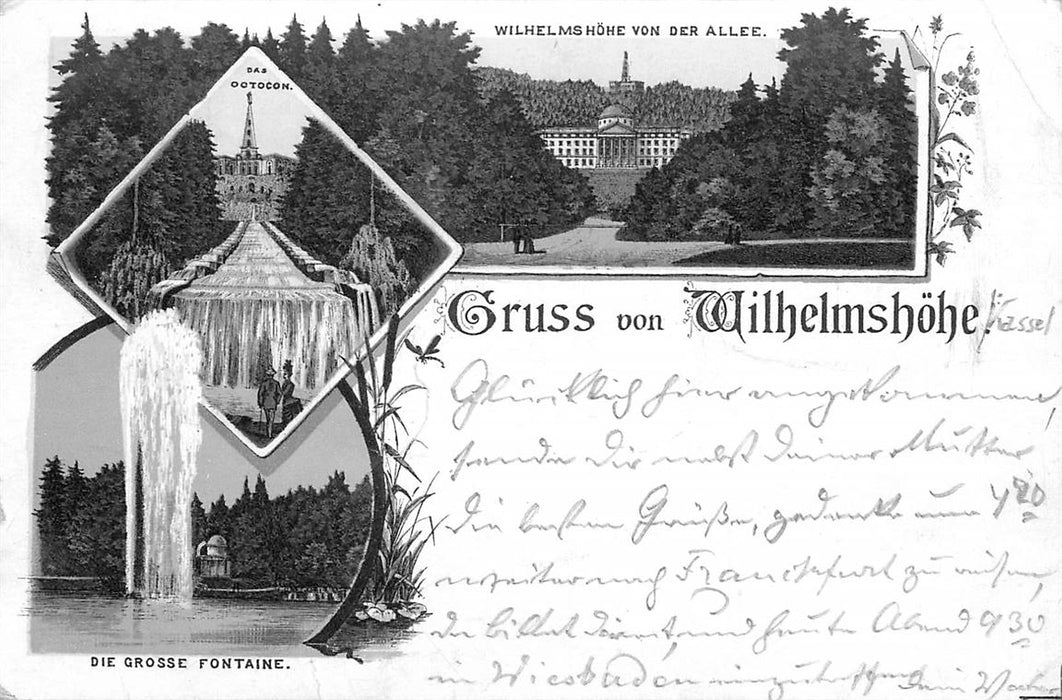 WILHELMSHÖHE VON DER ALLEE.
DAS
OCTOGON.
Gruss von Wilhelmshöhe.
Kassel
Glücklich hier angekommen
sende Dir nebst Deiner Mutter
die besten Grüße, gedenke um 4 20
weiter nach Franckfurt zu reisen,
da billet und heute Abend 9 30
in Wiesbaden einzutreffen Dein
DIE GROSSE FONTAINE.